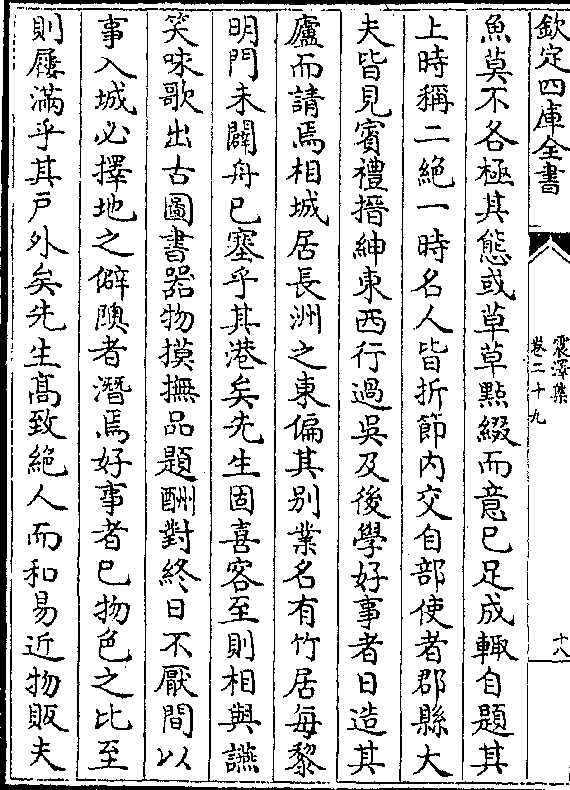 欽定四庫全書
震澤集
卷二十九
十八
魚莫不各極其態或草草點綴而意已足成輙自題其
上時稱二絶一時名人皆折節内交自部使者郡縣大
夫皆見賓禮搢紳東西行過吳及後學好事者日造其
廬而請焉相城居長洲之東偏其别業名有竹居每黎
明門未闢舟已塞乎其港矣先生固喜客至則相與讌
笑咏歌出古圖書器物摸撫品題酬對終日不厭間以
事入城必擇地之僻隩者潛焉好事者已物色之比至
則屨滿乎其戸外矣先生髙致絶人而和易近物販夫